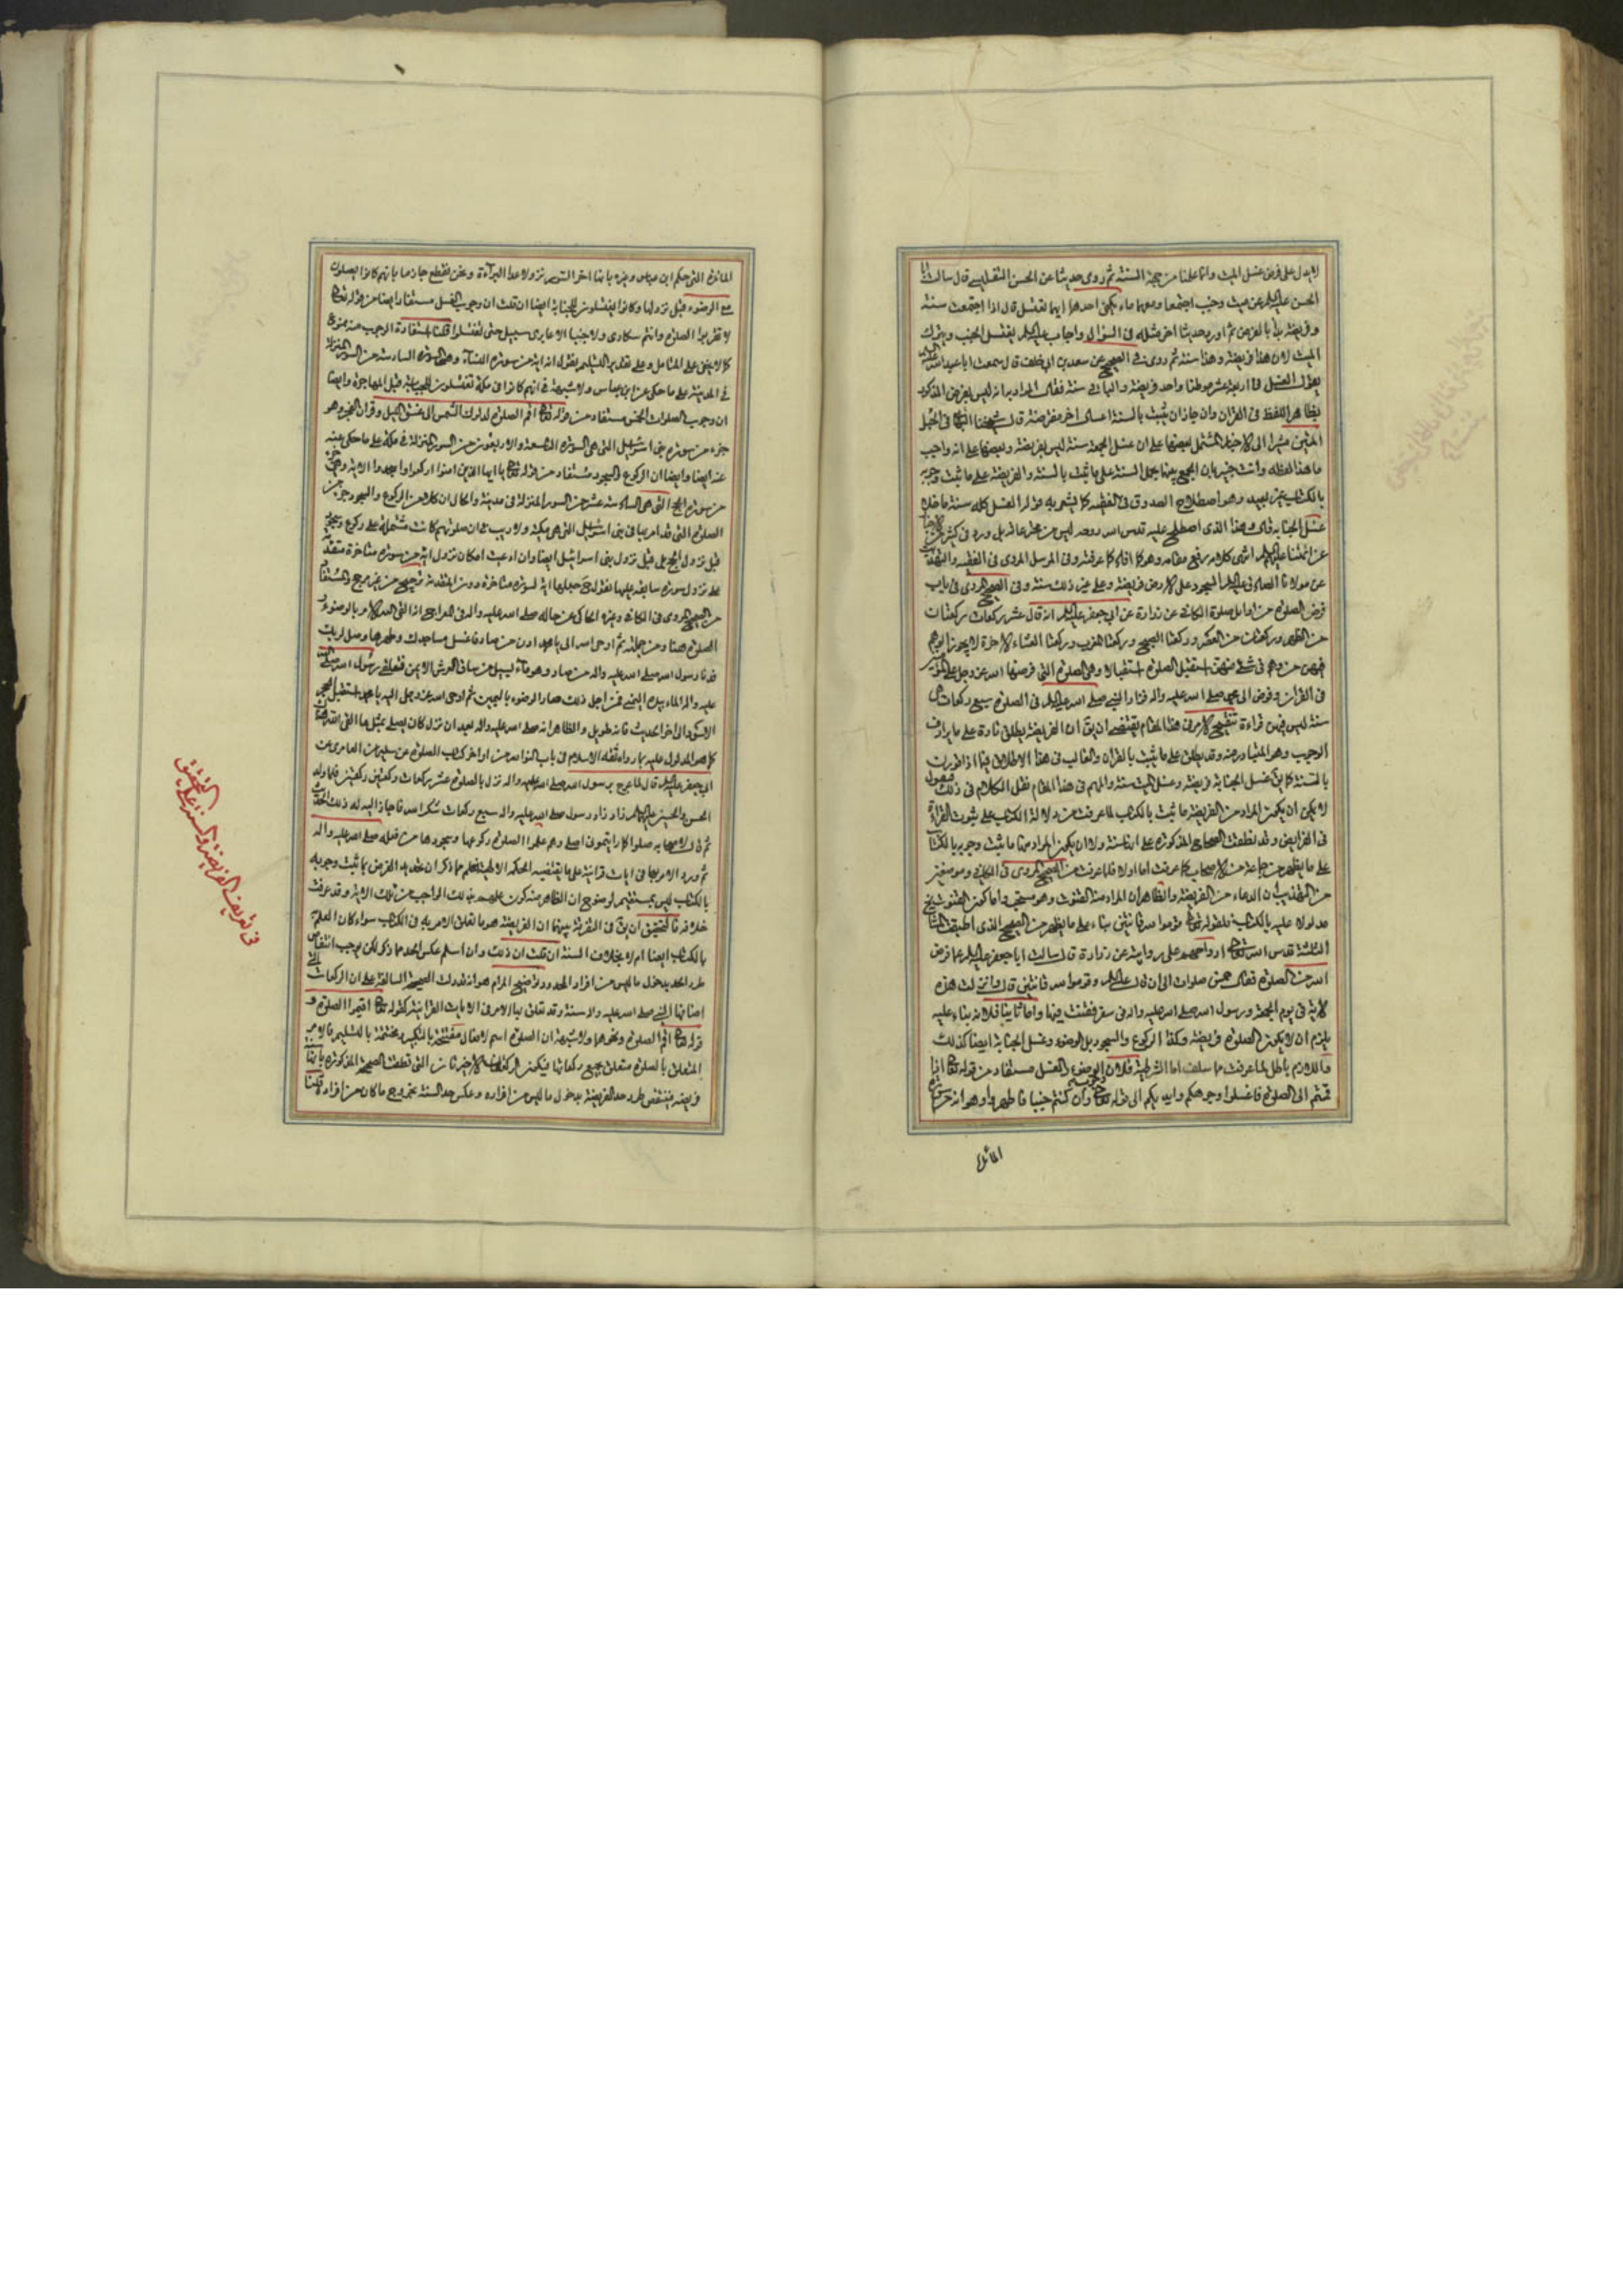 لا يدل على فرض غسل الميت وانما علمنا من جهة السنة ثم روى حديثا عن الحسن التفليسي قال سالت ابا
الحسن عليه السلام عن ميت وجنب اجتمعا ومعهما ماء يكفي احدهما ايهما يغتسل قال اذا اجتمعت سنة
وفريضة بدأ بالفرض ثم اورد حديثا اخر مثله في السؤال واجاب عليه السلام يغتسل الجنب ويترك
الميت لان هذا فريضة وهذا سنة ثم روى في الصحيح عن سعد بن ابي خلف قال سمعت ابا عبد الله عليه السلام
يقول الغسل في اربعة عشر موطنا واحد فريضة والباقي سنة فقال المراد به انه ليس بفرض المذكور
بظاهر اللفظ في القران وان جاز ان يثبت بالسنة اغسال اخر مفترضة قال شيخنا البهائي في الحبل
المتين مشيرا الى الاخبار المشتمل بعضها على ان غسل الجمعة سنة ليس بفريضة وبعضها على انه واجب
ما هذا لفظه وانت خبير بان الجمع بينها بحمل السنة على ما ثبت بالسنة والفريضة على ما ثبت وجوبه
بالكتاب غير بعيد وهو اصطلاح الصدوق في الفقيه كما يشعر به قوله الغسل كله سنة ما خلا
غسل الجنابة قال وهذا الذي اصطلح عليه قدس الله روحه ليس من مخترعاته بل ورد في كثير من الاخبار
عن ائمتنا عليهم السلام انتهى كلامه رفع مقامه وهو كما افاده كما عرفته وفي المرسل المروى في الفقيه والتهذيب
عن مولانا الصادق عليه السلام السجود على الارض فريضة وعلى غير ذلك سنة وفي الصحيح المروى في باب
فرض الصلوة من اوايل صلوة الكافي عن زرارة عن ابي جعفر عليه السلام انه قال عشر ركعات ركعتان
من الظهر وركعتان من العصر وركعتا الصبح وركعتا المغرب وركعتا العشاء الاخرة لا يجوز الوهم
فيهن من وهم في شئ منهن استقبل الصلوة استقبالا وهي الصلوة التي فرضها الله عز وجل على المؤمنين
في القران وفوض الى محمد صلى الله عليه واله فزاد النبي صلى الله عليه واله في الصلوة سبع ركعات هي
سنة ليس فيهن قراءة تنقيح الامر في هذا المقام يقتضي ان يق ان الفريضة يطلق تارة على ما يرادف
الوجوب وهو المتبادر منه وقد يطلق على ما ثبت بالقران والغالب في هذا الاطلاق فيما اذا قورنت
بالسنة كما يق غسل الجنابة فريضة وغسل الميت سنة والمهم في هذا المقام نقل الكلام في ذلك فنقول
لا يمكن ان يكون المراد من الفريضة ما ثبت بالكتاب لما عرفت من دلالة الكتاب على ثبوت القراءة
في الفرايض وقد نطقت الصحاح المذكورة على انها سنة ولا ان يكون المراد منها ما ثبت وجوبه بالكتاب
على ما يظهر من جماعة من الاصحاب كما عرفت اما اولا فلما عرفت من الصحيح المروى في الكافي وموضعين
من التهذيب ان الدعاء من الفريضة والظاهر ان المراد منه القنوت وهو مستحب واما كون القنوت
مدلولا عليه بالكتاب فلقوله تعالى قوموا لله قانتين بناء على ما يظهر من الصحيح الذي اطبق المشايخ
الثلثة قدس الله تعالى ارواحهم على روايته عن زرارة قال سالت ابا جعفر عليه السلام عما فرض
الله من الصلوة فقال خمس صلوات الى ان قال عليه السلام وقوموا لله قانتين قال وانزلت هذه
الاية في يوم الجمعة ورسول الله صلى الله عليه واله في سفر فقنت فيها واما ثانيا فلانه بناء عليه
يلزم ان لا يكون الصلوة فريضة وكذا الركوع والسجود بل الوضوء وغسل الجنابة ايضا كذلك
واللازم باطل لما عرفت مما سلف اما الشرطية فلان الوضوء والغسل مستفاد من قوله تعالى اذا
قمتم الى الصلوة فاغسلوا وجوهكم وايديكم الى قوله تعالى وان كنتم جنبا فاطهروا وهو انه من سورة
المائدة
المائدة التي حكم ابن عباس وغيره بانها اخر السور نزولا عدا البراءة ونحن نقطع جازما بانهم كانوا يصلون
مع الوضوء قبل نزولها وكانوا يغتسلون للجنابة ايضا ان قلت ان وجوب الغسل مستفاد ايضا من قوله تعالى
لا تقربوا الصلوة وانتم سكارى ولا جنبا الا عابرى سبيل حتى تغتسلوا قلنا استفادة الوجوب منه ممنوع
كما لا يخفى على المتامل وعلى تقدير التسليم نقول انه اية من سورة النساء وهي السورة السادسة من السور المنزلة
في المدينة على ما حكى عن ابن عباس ولا شبهة في انهم كانوا في مكة تغتسلون للجنابة قبل المهاجرة وايضا
ان وجوب الصلوات الخمس مستفاد من قوله تعالى اقم الصلوة لدلوك الشمس الى غسق الليل وقران الفجر وهو
جزء من سورة بني اسرائيل التي هي السورة التاسعة والاربعون من السور المنزلة في مكة على ما حكى عنه
عنه ايضا وايضا ان الركوع والسجود مستفاد من قوله تعالى يا ايها الذين امنوا اركعوا واسجدوا الاية وهي جزء
من سورة الحج التي هي السادسة عشر من السور المنزلة في مدينة والحال ان كلا من الركوع والسجود جزء من
الصلوة التي قد امر بها في بني اسرائيل التي هي مكية ولا ريب في ان صلوتهم كانت مشتملة على ركوع وسجود
قبل نزول الحج بل قبل نزول بني اسرائيل ايضا وان ادعيت امكان نزول اية من سورة متاخرة متقدمة
على نزول سورة سابقة عليها نقول ح جعلها اية لسورة متاخرة دون المتقدمة ترجيح من غير مرجح والمستفاد
من الصحيح المروى في الكافي وغيره الحاكى عن حاله صلى الله عليه واله في المعراج انه القى اليه الامر بالوضوء و
الصلوة هنا ومن جملته ثم اوحى الله الى يا محمد ادن من صاد فاغسل مساجدك وطهرها وصل لربك
فدنا رسول الله صلى الله عليه واله من صاد وهو ماء يسيل من ساق العرش الايمن فتلقى رسول الله صلى الله
عليه واله الماء بيده اليمنى فمن اجل ذلك صار الوضوء باليمين ثم اوحى الله عز وجل اليه يا محمد استقبل الحجر
الاسود الى اخر الحديث فانه طويل والظاهر انه صلى الله عليه واله بعد ان نزل كان يصلي بمثل ما القى اليه هناك
كما هو المدلول عليه بما رواه ثقة الاسلام في باب النوادر من اواخر كتاب الصلوة عن سليمان العامرى عن
ابي جعفر عليه السلام قال لما عرج برسول الله صلى الله عليه واله نزل بالصلوة عشر ركعات ركعتين ركعتين فلما ولد
الحسن والحسين عليهما السلام زاد رسول الله صلى الله عليه واله سبع ركعات شكرا لله فاجاز الله له ذلك الحديث
ثم قال لامها به صلوا كما رايتموني اصلي وهم علموا الصلوة ركوعها وسجودها من فعله صلى الله عليه واله
ثم ورد الامر بها في ايات قرانية على ما يقتضيه الحكمة الالهية فعلم مما ذكر ان تحديد الفرض بما ثبت وجوبه
بالكتاب ليس بمستقيم لوضوح ان الظاهر منه كون علمهم بذلك الواجب من تلك الاية وقد عرفت
خلافه فالتحقيق ان يق في التفرقة بينهما ان الفريضة هو ما تعلق الامر به في الكتاب سواء كان العلم
بالكتاب ايضا ام لا بخلاف السنة ان قلت ان ذلك وان اسلم عكس الحد مما ذكر لكن يوجب انتقاض
طرد الحد بدخول ما ليس من افراد المحدود توضيح المرام هو انه قد دلت الصحيحة السالفة على ان الركعات التي
اضافها النبي صلى الله عليه واله سنة وقد تعلق بها الامر في الايات القرانية كقوله تعالى اقيموا الصلوة و
قوله تعالى اقم الصلوة ونحوهما ولا شبهة ان الصلوة اسم لافعال مفتتحة بالتكبير مختتمة بالتسليم فالامر
المتعلق بالصلوة متعلق بجميع ركعاتها فيكون الركعتان الاخيرتان التي نطقت الصحيحة المذكورة بانها
فريضة فينتقض طرد حد الفريضة بدخول ما ليس من افراده وعكس حد السنة بخروج ما كان من افراده قلنا
في تعريف الفريضة والسنة على التحقيق